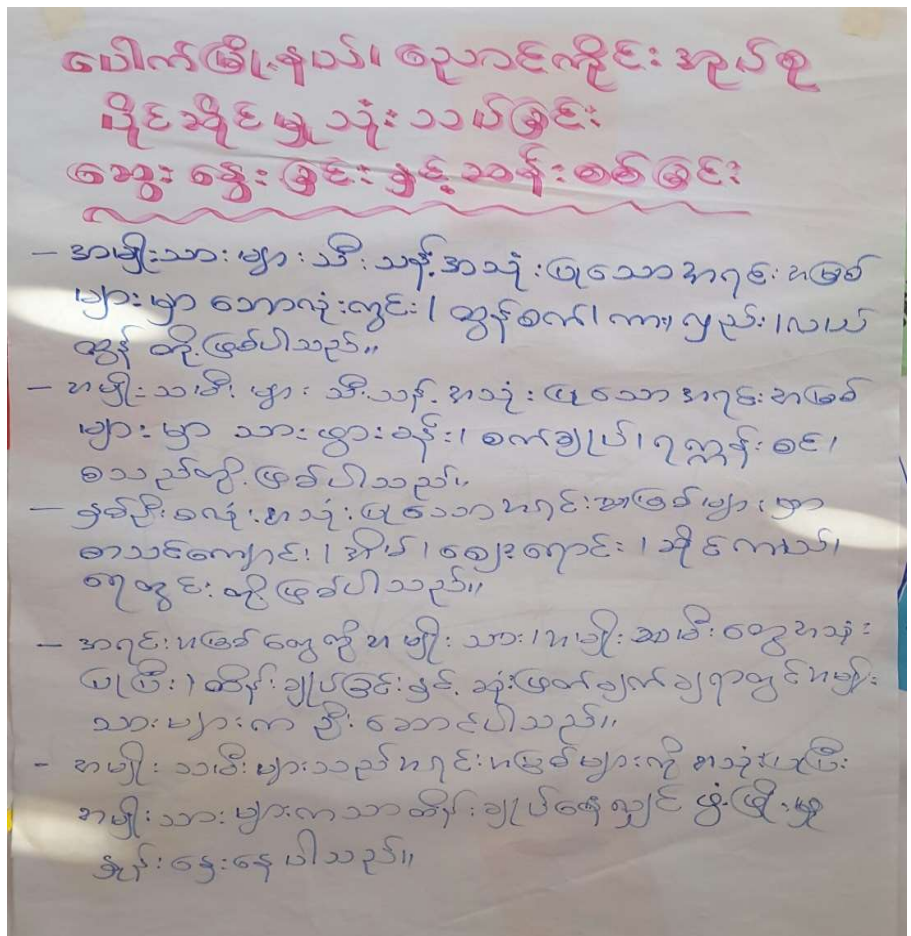 ပေါက်မြို့နယ်၊ ညောင်ကိုင်း အုပ်စု
ပိုင်ဆိုင်မှု သုံးသပ်ခြင်း
ဆွေးနွေးခြင်းနှင့် ဆန်းစစ်ခြင်း
- အမျိုးသားများ သီးသန့် အသုံးပြုသော အရင်းအမြစ်
များမှာ ဘောလုံးကွင်း၊ ထွန်စက်၊ ကား၊ လှည်း၊ လယ်
ထွန် တို့ဖြစ်ပါသည်။
- အမျိုးသမီးများ သီးသန့် အသုံးပြုသော အရင်းအမြစ်
များမှာ သားဖွားခန်း၊ စက်ချုပ်၊ ရက္ကန်းစင်၊
စသည်တို့ဖြစ်ပါသည်။
- နှစ်ဦးစလုံး အသုံးပြုသော အရင်းအမြစ်များမှာ
စာသင်ကျောင်း၊ အိမ်၊ ဈေးရောင်း၊ ဆိုင်ကယ်၊
ရေတွင်း တို့ဖြစ်ပါသည်။
- အရင်းအမြစ်တွေကို အမျိုးသား၊ အမျိုးသမီးတွေ အသုံး
ပြုပြီး၊ ထိန်းချုပ်ခြင်းနှင့် ဆုံးဖြတ်ချက်ချရာတွင် အမျိုး
သားများက ဦးဆောင်ပါသည်။
- အမျိုးသမီးများသည် အရင်းအမြစ်များကို အသုံးပြုပြီး
အမျိုးသားများကသာ ထိန်းချုပ်နေလျှင် ဖွံ့ဖြိုးမှု
နှုန်းနှေးနေပါသည်။